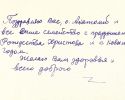 Поздравляю Вас, о. Анатолий и
все Ваше семейство с праздником
Рождества Христова и с новым
годом.
Желаю Вам здоровья и
всего доброго